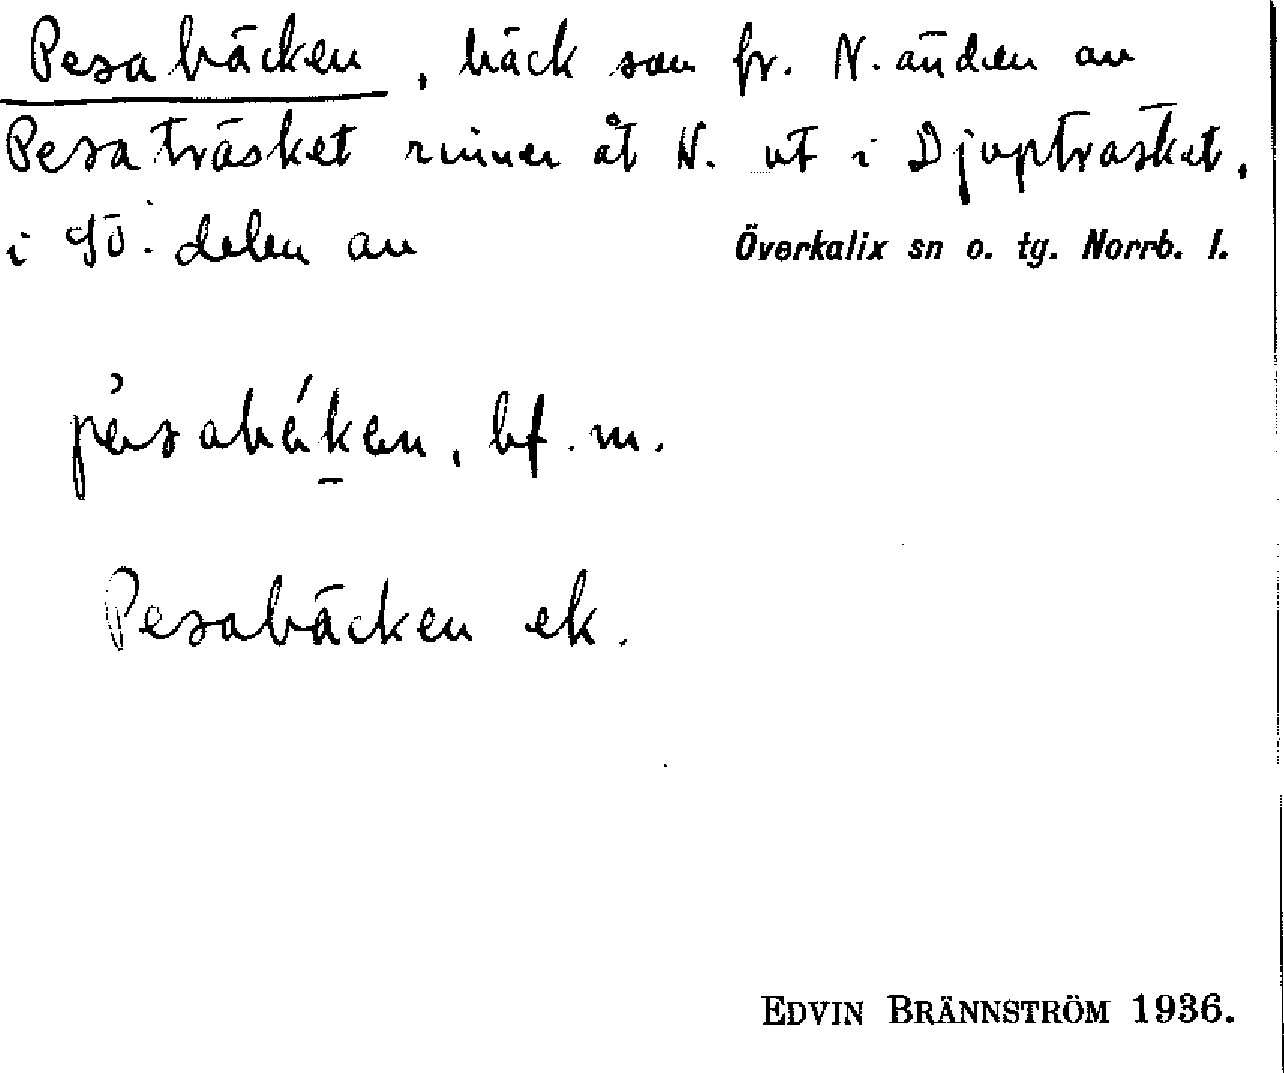 Pesabäcken, bäck som fr. N. änden av
Pesaträsket rinner åt N. ut i Djupträsket,
i SÖ. delen av Överkalix sn o. tg. Norrb. l.
bf. m.
Pesabäcken ek.
EDVIN BRÄNNSTRÖM 1936.